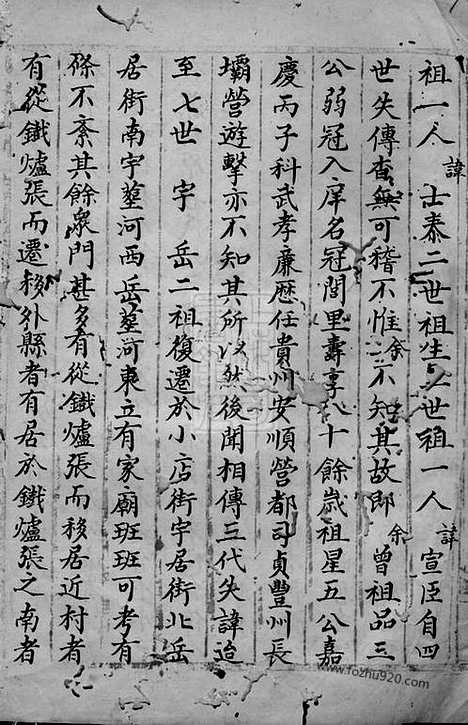 祖一人諱士泰二世祖生三世祖一人諱宣臣自四
世失傳查無可稽不惟余不知其故即余曾祖品三
公弱冠入庠名冠閭里壽享八十餘歲祖星五公嘉
慶丙子科武孝廉歷任貴州安順營都司貞豐州長
壩營遊擊亦不知其所以然後聞相傳三代失諱迨
至七世宇岳二祖復遷於小店街宇居街北岳
居街南宇塟河西岳塟河東立有家廟班班可考有
條不紊其餘衆門甚多有從鐵爐張而移居近村者
有從鐵爐張而遷移外縣者有居於鐵爐張之南者
www.fozhu920.com